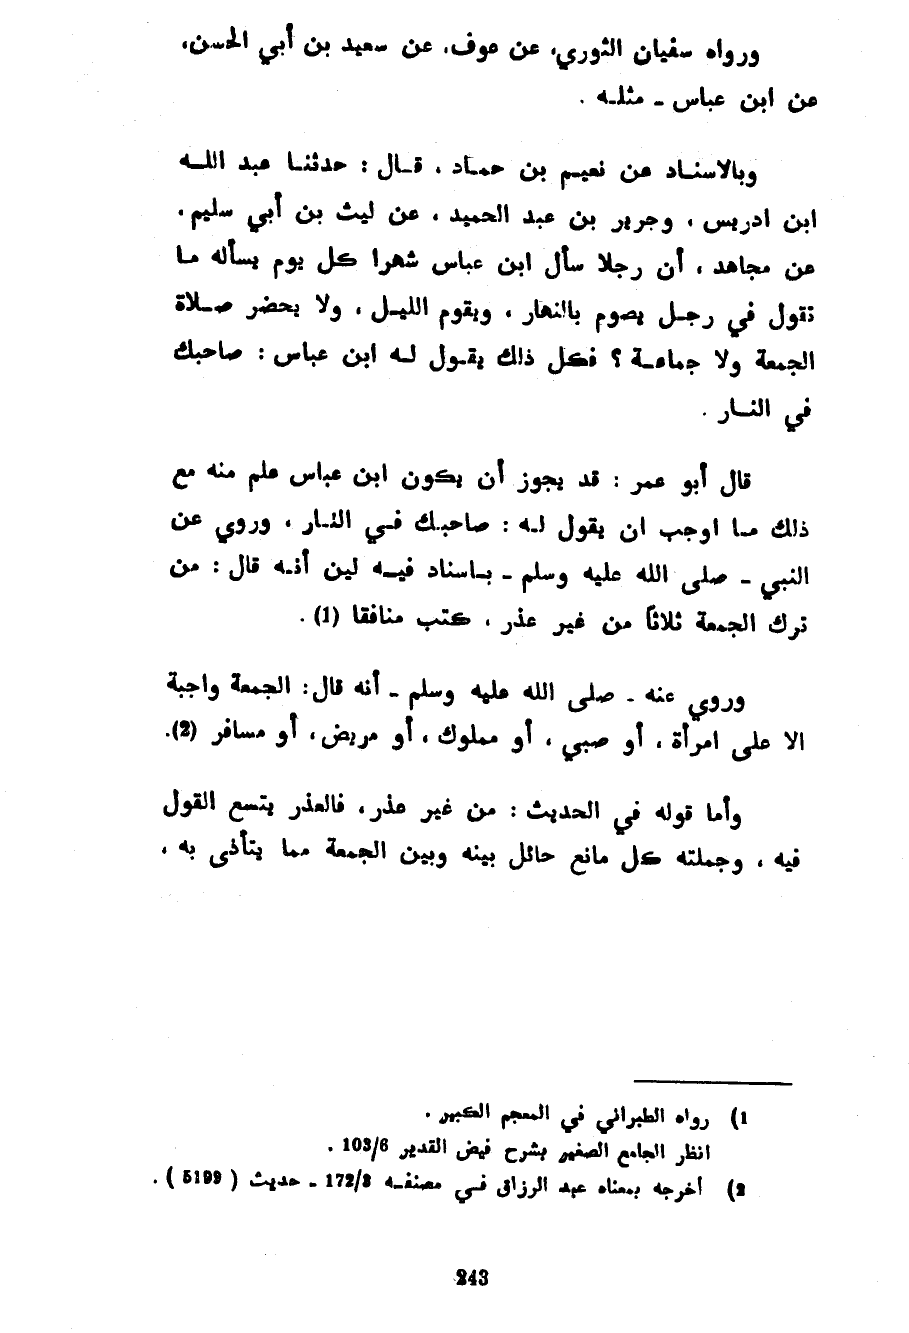 ورواه سفيان الثوري، عن عوف، عن سعيد بن أبي الحسن،
عن ابن عباس ـ مثلـه .
وبالاسنـاد عن نعيـم بن حمـاد ، قـال : حدثنـا عبد اللـه
ابن ادريس ، وجرير بن عبد الحميد ، عن ليث بن أبي سليم ،
عن مجاهد ، أن رجلا سأل ابن عباس شهرا كل يوم يسأله مـا
تقول في رجـل يصوم بالنهار ، ويقوم الليـل ، ولا يحضر صـلاة
الجمعة ولا جماعـة ؟ فكل ذلك يقـول لـه ابن عباس : صاحبك
في النـار .
قال أبو عمر : قد يجوز أن يكون ابن عباس علم منه مع
ذلك مـا اوجب ان يقول لـه : صاحبـك فـي النـار ، وروي عن
النبي ـ صلى الله عليه وسلم ـ بـاسناد فيـه لين أنـه قال : من
ترك الجمعة ثلاثاً من غير عذر ، كتب منافقا (1) .
وروي عنه ـ صلى الله عليه وسلم ـ أنه قال: الجمعة واجبة
الا على امرأة ، أو صبي ، أو مملوك ، أو مريض، أو مسافر (2).
وأما قوله في الحديث : من غير عذر، فالعذر يتسع القول
فيه ، وجملته كل مانع حائل بينه وبين الجمعة مما يتأذى به ،
1) رواه الطبراني في المعجم الكبير .
انظر الجامع الصغير بشرح فيض القدير 103/6 .
2) أخرجه بمعناه عبد الرزاق فـي مصنفـه 172/3 ـ حديث ( 5199 ) .
243